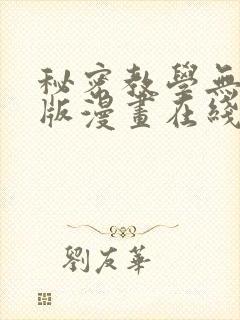 秘密教學無
版漫畫在綫
劉友華